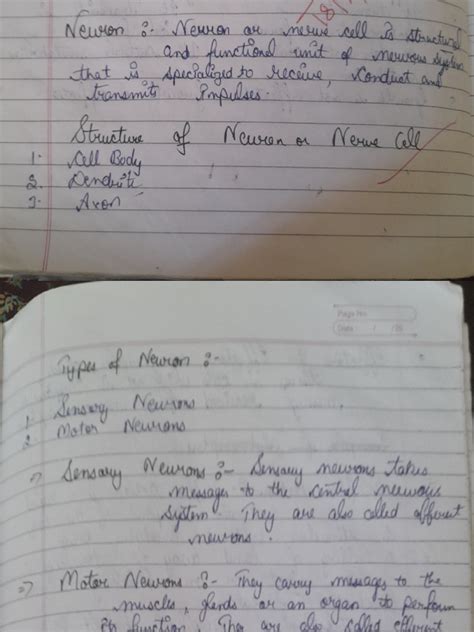 18/
Neuron :- Neuron or nerve cell is structural
and functional unit of nervous system
that is specialized to receive, conduct and
transmit impulses.
Structure of Neuron or Nerve Cell
1. Cell Body
2. Dendrite
3. Axon
Page No.
Date / /20
Types of Neuron :-
1 Sensory Neurons
2 Motor Neurons
⇒ Sensory Neurons :- Sensory neurons takes
messages to the central nervous
system. They are also called afferent
neurons.
⇒ Motor Neurons :- They carry messages to the
muscles, glands or an organ to perform
its function. They are also called efferent